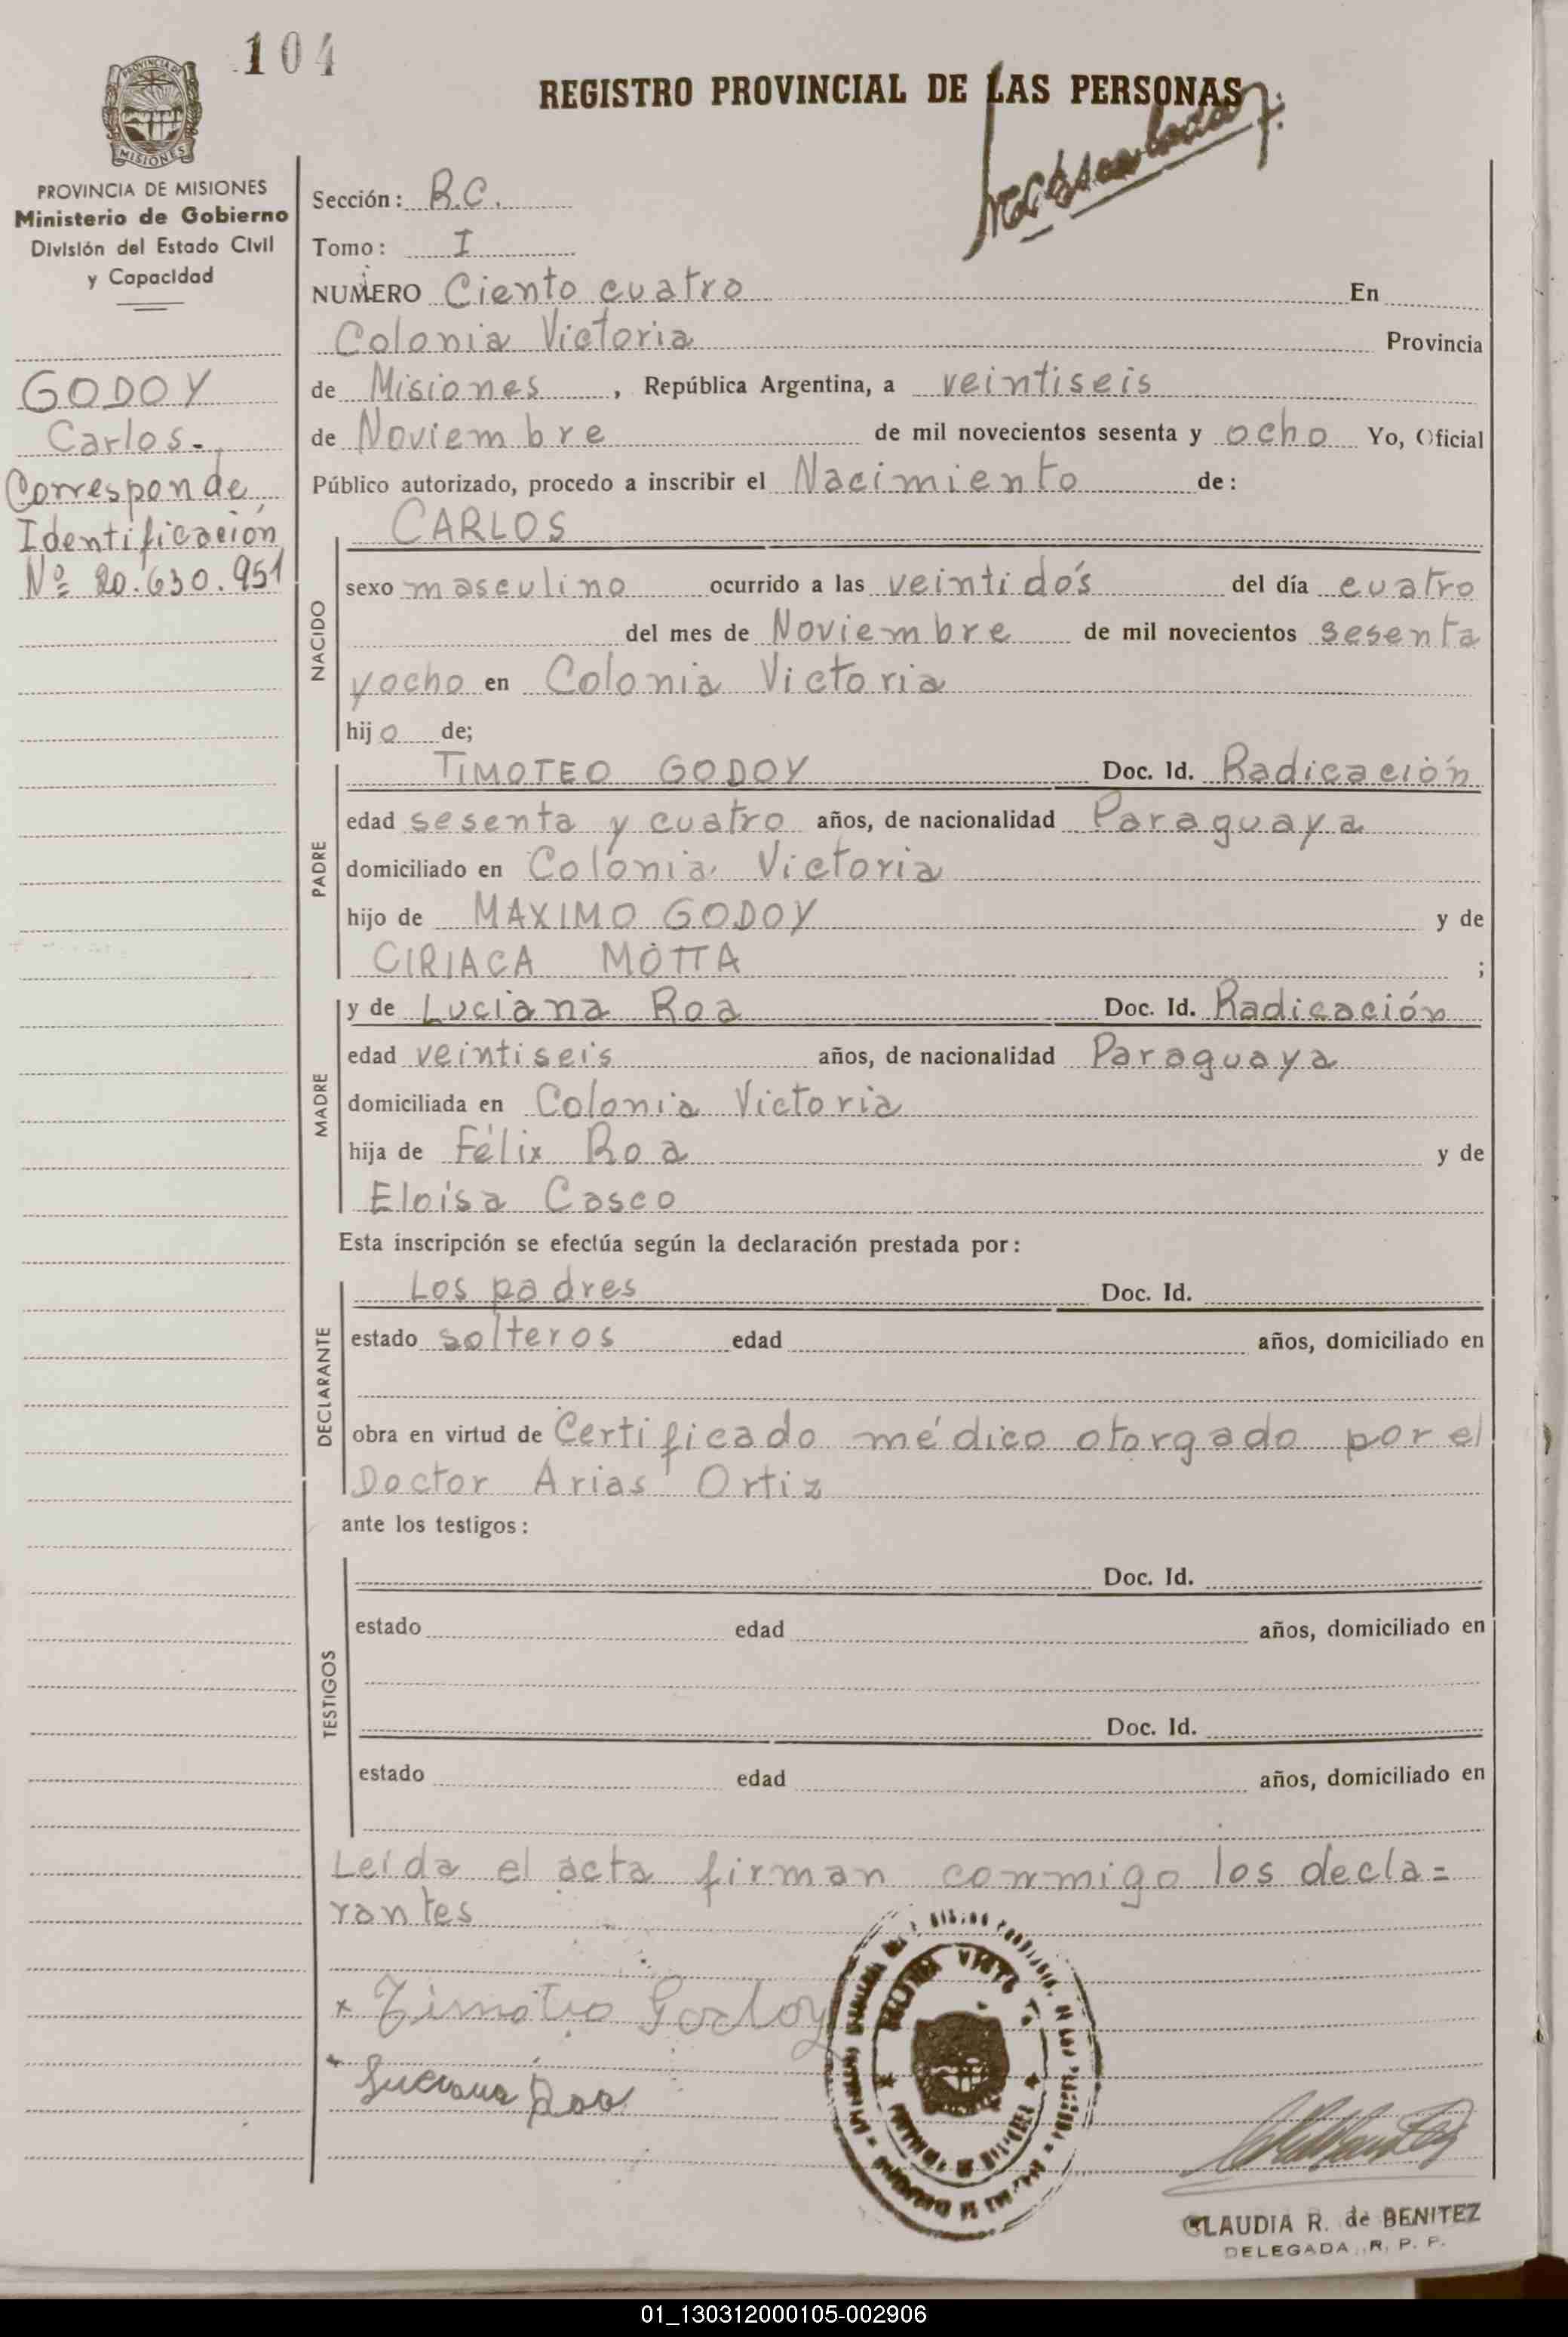 104
REGISTRO PROVINCIAL DE LAS PERSONAS
PROVINCIA DE
MISIONES
PROVINCIA DE MISIONES
Ministerio de Gobierno
División del Estado Civil
y Capacidad
GODOY
Carlos.-
Corresponde
Identificación
Nº 20.630.951
Sección: R.C.
Tomo: I
NUMERO Ciento cuatro En
Colonia Victoria Provincia
de Misiones, República Argentina, a veintiseis
de Noviembre de mil novecientos sesenta y ocho Yo, Oficial
Público autorizado, procedo a inscribir el Nacimiento de:
NACIDO
CARLOS
sexo masculino ocurrido a las veintidós del día cuatro
del mes de Noviembre de mil novecientos sesenta
yocho en Colonia Victoria
hijo de;
PADRE
TIMOTEO GODOY Doc. Id. Radicación
edad sesenta y cuatro años, de nacionalidad Paraguaya
domiciliado en Colonia Victoria
hijo de MAXIMO GODOY y de
CIRIACA MOTTA ;
MADRE
y de Luciana Roa Doc. Id. Radicación
edad veintiseis años, de nacionalidad Paraguaya
domiciliada en Colonia Victoria
hija de Félix Roa y de
Eloisa Casco
Esta inscripción se efectúa según la declaración prestada por:
DECLARANTE
Los padres Doc. Id.
estado solteros edad años, domiciliado en
obra en virtud de Certificado médico otorgado por el
Doctor Arias Ortiz
ante los testigos:
TESTIGOS
Doc. Id.
estado edad años, domiciliado en
Doc. Id.
estado edad años, domiciliado en
Leída el acta firman conmigo los decla=
rantes
x Timoteo Godoy
Luciana Roa
CLAUDIA R. de BENITEZ
DELEGADA R. P. P.
01_130312000105-002906